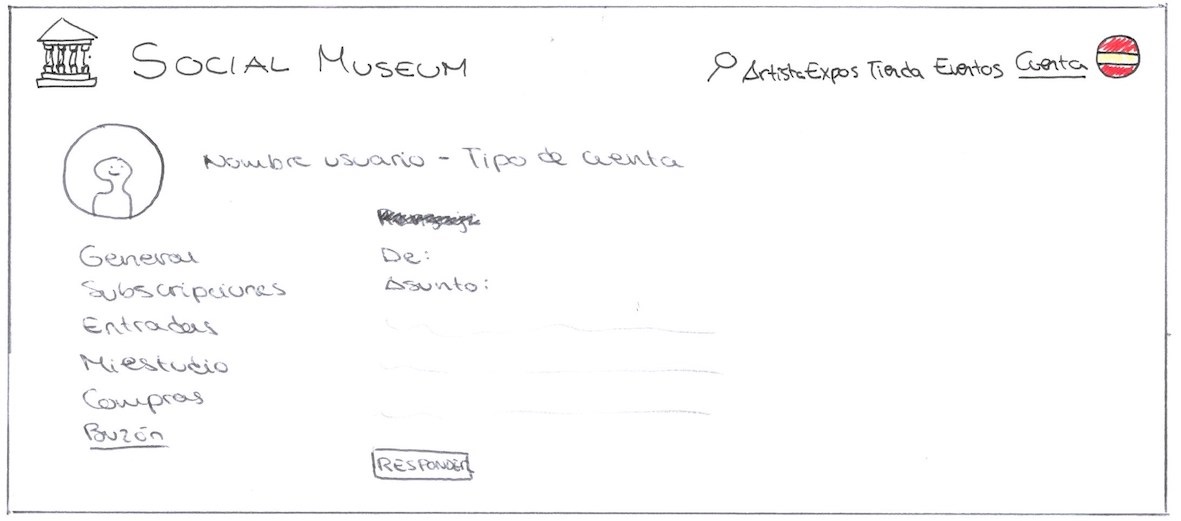 SOCIAL MUSEUM
Artista Expos Tienda Eventos Cuenta
Nombre usuario - Tipo de cuenta
General
Subscripciones
Entradas
Mi estudio
Compras
Buzón
De:
Asunto:
RESPONDER